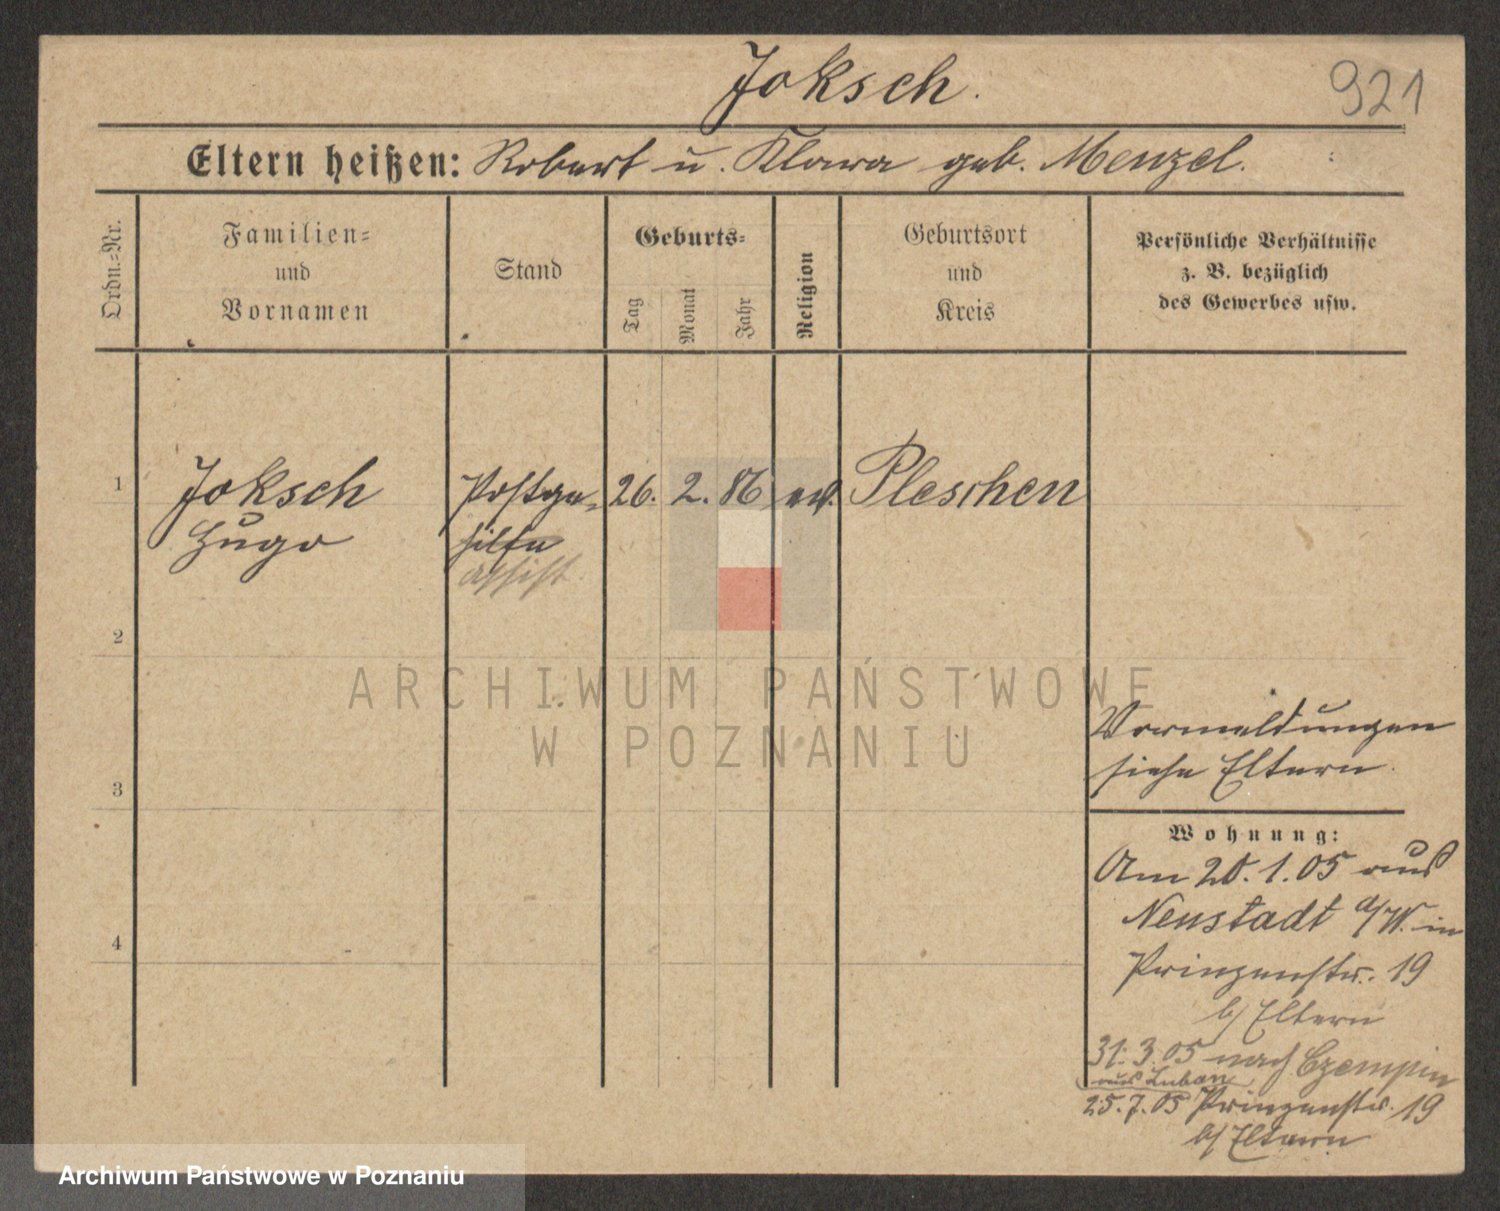 Joksch.
921
Eltern heißen: Robert u. Klara geb. Menzel.
Ordn.-Nr.
Familien-
und
Vornamen
Stand
Geburts-
Tag
Monat
Jahr
Religion
Geburtsort
und
Kreis
Persönliche Verhältnisse
z. B. bezüglich
des Gewerbes usw.
1
Joksch
Hugo
Postge-
hilfe
assist.
26.
2.
86
ev.
Pleschen
2
3
4
ARCHIWUM PAŃSTWOWE
W POZNANIU
Vormeldungen
siehe Eltern.
Wohnung:
Am 20.1.05 aus
Neustadt a/W. in
Prinzenstr. 19
b/ Eltern
31.3.05 nach Czempin
aus Luban
25.7.05 Prinzenstr. 19
b/ Eltern
Archiwum Państwowe w Poznaniu